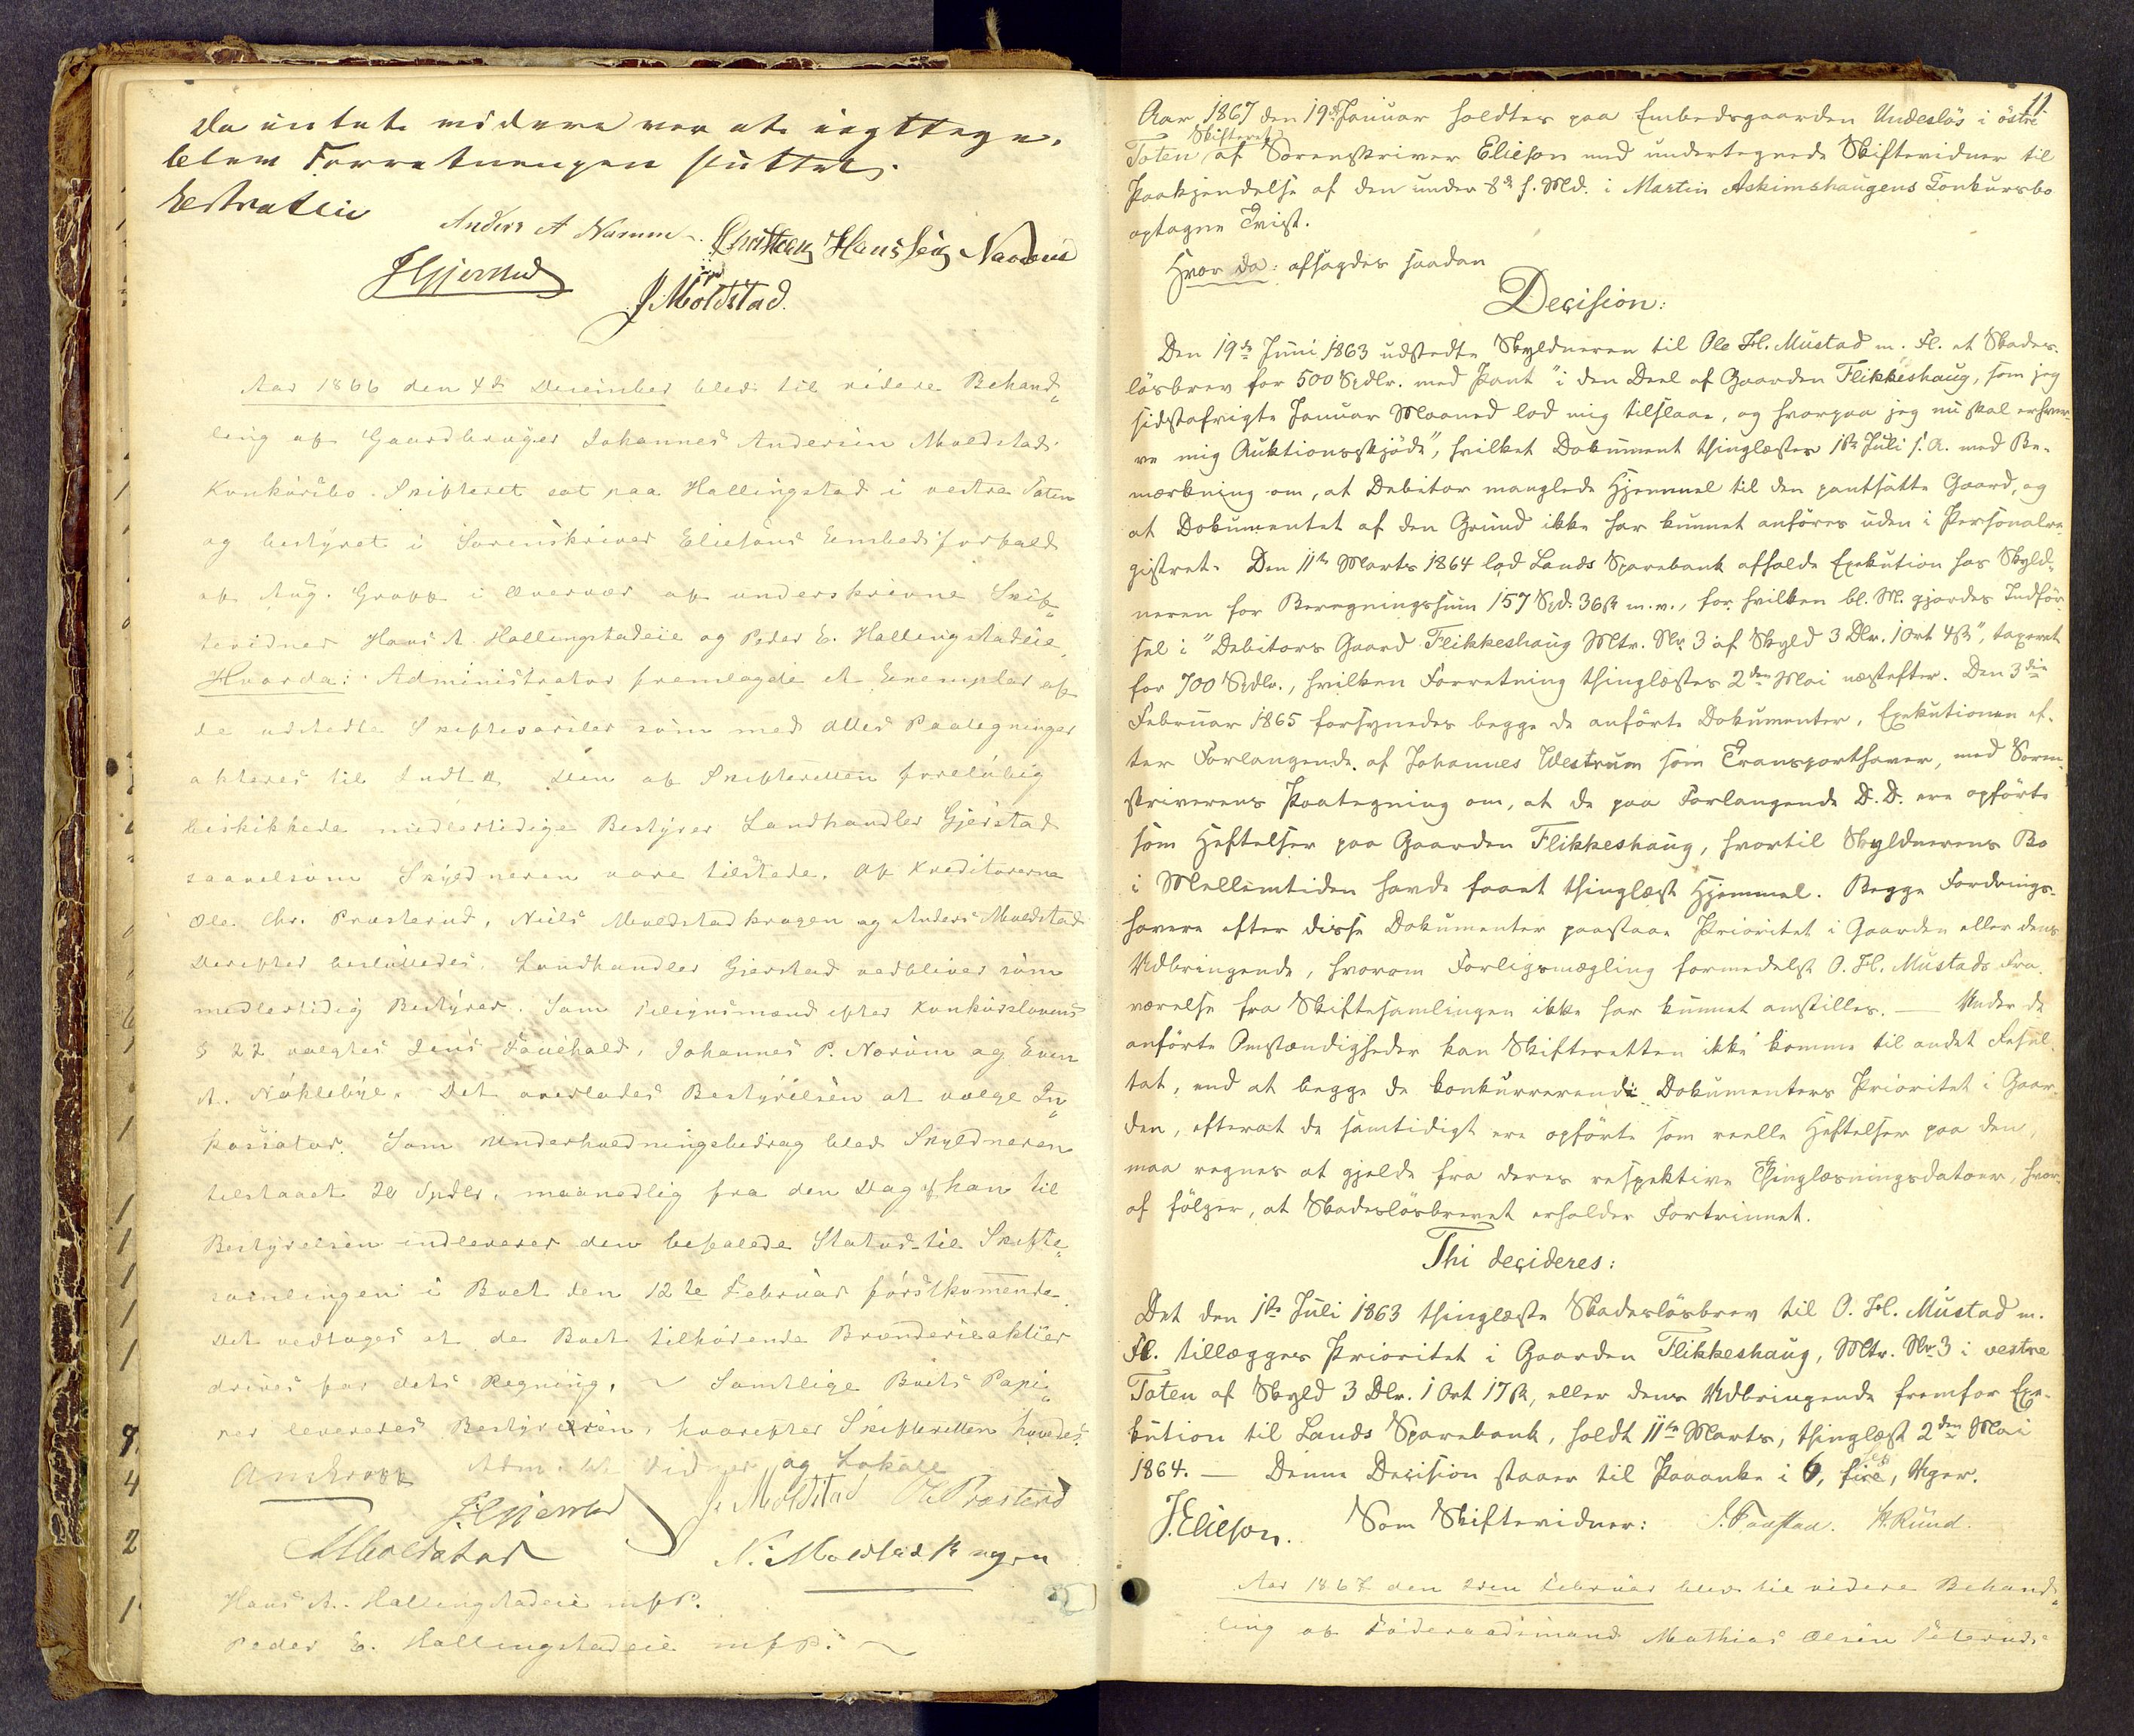 da intet videre var at iagttage,
blev Forretningen sluttet.
Anders A Narum Christian Hanssen Narum
JHGjerstad
J. Moldstad.
Aar 1866 den 4de December blev til videre Behand„
ling af Gaardbruger Johannes Andersen Moldstads
Konkursbo. Skifteret sat paa Hallingstad i vestre Toten
og bestyret i Sorenskriver Eliesons Embedsforfald
af Aug. Gropp i Overvær af underskrivne Skif„
tevidner Hans A. Hallingstadeie og Peder E. Hallingstadeie,
Hvorda: Administrator fremlagde et Exemplar af
de udstedte Skiftevarsler som med dets Paategninger
akteres til Indt. Den af Skifteretten foreløbig
beskikkede midlertidige Bestyrer Landhandler Gjerstad
saavelsom Skyldneren vare tilstede. Af Kreditorerne
Ole Chr. Prasterud, Niels Moldstadkragen og Anders Moldstad
Derefter besluttedes. Landhandler Gjerstad vedbliver som
medlertidig Bestyrer. Som Tilsynsmænd efter Konkurslovens
§ 22 valgtes Jens Fauchald, Johannes P. Narum og Even
A. Nøklebye. Det overlodes Bestyrelsen at vælge In„
kassator. Som Underholdningsbidrag blev Skyldneren
tilstaaet 20 Spdlr. maanedlig fra den Dag af han til
Bestyrelsen indleverer den befalede Status til Skifte„
samlingen i Boet den 12te Februar førstkomende.
Det vedtoges at de Boet tilhørende Brænderieaktier
drives for dets Regning. ~ Samtlige Boets Papi„
rer leveredes Bestyrelsen, hvorefter Skifteretten hævedes.
Adm. Vidner og Lokale
Aug Gropp
JHGjerstad J. Moldstad OC Prasterud
AMoldstad N. Moldstadkragen
Hans A. Hallingstadeie mfP.
Peder E. Hallingstadeie mfP. ~
11
Aar 1867 den 19de Januar holdtes paa Embedsgaarden Undeslös i östre
Toten Skifteret af Sorenskriver Elieson med undertegnede Skiftevidner til
Paakjendelse af den under 8de f. Md. i Martin Askimshaugens Konkursbo
optagne Tvist.
Hvor da: afsagdes saadan
Decision:
Den 19de Juni 1863 udstedte Skyldneren til Ole Hl. Mustad m. Fl. et Skades-
lösbrev for 500 Spdlr. med Pant "i den Deel af Gaarden Flikkeshaug, som jeg
sidstafvigte Januar Maaned lod mig tilslaae, og hvorpaa jeg nu skal erhver-
ve mig Auktionsskjöde", hvilket Dokument thinglæstes 1ste Juli s. A. med Be-
mærkning om, at Debitor manglede Hjemmel til den pantsatte Gaard, og
at Dokumentet af den Grund ikke har kunnet anföres uden i Personalre-
gistret. Den 11te Marts 1864 lod Lands Sparebank afholde Exekution hos Skyld-
neren for Beregningssum 157 Spd. 36 ß m. v., for hvilken bl. M. gjordes Indför-
sel i "Debitors Gaard Flikkeshaug Mtr. No 3 af Skyld 3 Dlr. 1 Ort 4 ß", taxeret
for 700 Spdlr., hvilken Forretning thinglæstes 2den Mai næstefter. Den 3die
Februar 1865 forsynedes begge de anförte Dokumenter, Exekutionen ef-
ter Forlangende af Johannes Westrum som Transporthaver, med Soren-
skriverens Paategning om, at de paa Forlangende D. D. ere opförte
som Heftelser paa Gaarden Flikkeshaug, hvortil Skyldnerens Bo
i Mellemtiden havde faaet thinglæst Hjemmel. Begge Fordrings-
havere efter disse Dokumenter paastaae Prioritet i Gaarden eller dens
Udbringende, hvorom Forligsmægling formedelst O. Hl. Mustads Fra-
værelse fra Skiftesamlingen ikke har kunnet anstilles. — Under de
anförte Omstændigheder kan Skifteretten ikke komme til andet Resul-
tat, end at begge de konkurrerende Dokumenters Prioritet i Gaar-
den, efterat de samtidigt ere opförte som reelle Heftelser paa den,
maa regnes at gjelde fra deres respektive Thinglæsningsdatoer, hvor-
af fölger, at Skadeslösbrevet erholder Fortrinnet.
Thi decideres:
Det den 1ste Juli 1863 thinglæste Skadeslösbrev til O. Hl. Mustad m.
Fl. tillægges Prioritet i Gaarden Flikkeshaug, Mtr. No 3 i vestre
Toten af Skyld 3 Dlr. 1 Ort 17 ß, eller dens Udbringende fremfor Exe-
kution til Lands Sparebank, holdt 11te Marts, thinglæst 2den Mai
1864. — Denne Decision staaer til Paaanke i 6, sex, Uger.
J. Elieson. Som Skiftevidner: H. Rund
Aar 1867 den 2den Februar blev til videre Behand„
ling af Föderaadsmand Mathias Olsen Seteruds